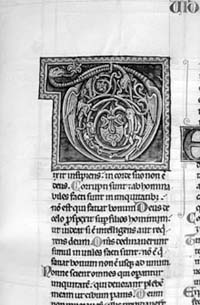 D
xit insipiens: in corde suo non ē
deus. Corrupti sunt et abhomina
biles facti sunt in iniquitatibꝰ:
nō est qui faciat bonum. Deus de
celo ꝓspexit sup̄ filios hominum:
ut uideat si ē intelligens aut req̄
rens deum. Omnes declinauerunt
simul inutiles facti sunt: nō ē qui
faciat bonum non ē usq; ad unum.
Nonne scient omnes qui operantur
iniquitatē: qui deuorant plebē
meam ut cibum panis. Deum